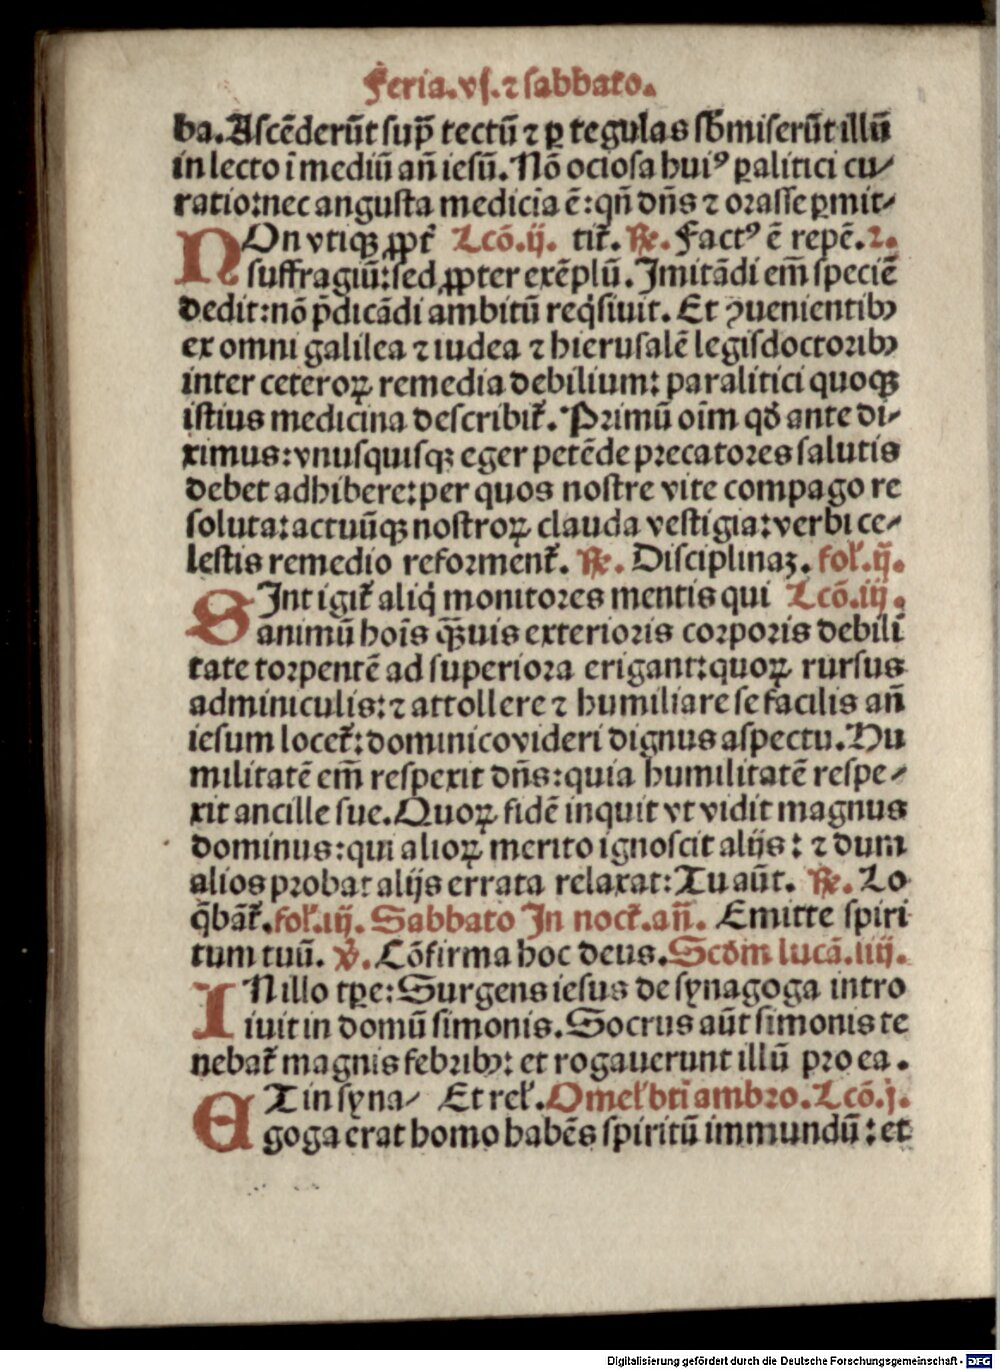 Feria.vj.⁊ sabbato.
ba.Ascẽderũt sup̃ tectũ ⁊ ꝑ tegulas sb̃miserũt illũ
in lecto ĩ mediũ añ iesũ. Nõ ociosa huiꝰ ꝑalitici cu⸗
ratio:nec angusta medicĩa ẽ:qñ dñs ⁊ orasse ꝑmit⸗
NOn vtiqꝫ ꝓpt̃ Lcõ.ij. tit̃. ℟. Factꝰ ẽ repẽ.2.
suffragiũ:sed ꝓpter exẽplũ. Imitãdi em̃ speciẽ
dedit:nõ p̃dicãdi ambitũ reqͥsiuit. Et ꝯuenientibꝫ
ex omni galilea ⁊ iudea ⁊ hierusalẽ legisdoctoribꝫ
inter ceteroꝝ remedia debilium: paralitici quoqꝫ
istius medicina describit̃. Primũ oĩm qđ ante di⸗
ximus:vnusquisqꝫ eger petẽde precatores salutis
debet adhibere:per quos nostre vite compago re
soluta:actuũqꝫ nostroꝝ clauda vestigia:verbi ce⸗
lestis remedio reforment̃. ℟. Disciplinaꝫ. fol̃.ij.
SInt igit̃ aliqͥ monitores mentis qui Lcõ.iij.
animũ hoĩs qꝫ̃uis exterioris corporis debili
tate torpentẽ ad superiora erigant:quoꝝ rursus
adminiculis:⁊ attollere ⁊ humiliare se facilis añ
iesum locet̃:dominico videri dignus aspectu. Hu
militatẽ em̃ respexit dñs:quia humilitatẽ respe⸗
xit ancille sue. Quoꝝ fidẽ inquit vt vidit magnus
dominus:qui alioꝝ merito ignoscit alijs: ⁊ dum
alios probat alijs errata relaxat: Tu aũt. ℟. Lo
q̃bãt̃.fol̃.iij. Sabbato In noct̃.añ. Emitte spiri
tum tuũ. ℣. Cõfirma hoc deus. Scđm lucã.iiij.
IN illo tꝑe: Surgens iesus de synagoga intro
iuit in domũ simonis. Socrus aũt simonis te
nebat̃ magnis febribꝫ: et rogauerunt illũ pro ea.
ET in syna⸗ Et rel̃. Omel̃ bti ambro. Lcõ.j.
goga erat homo habẽs spiritũ immundũ: et
Digitalisierung gefördert durch die Deutsche Forschungsgemeinschaft - DFG